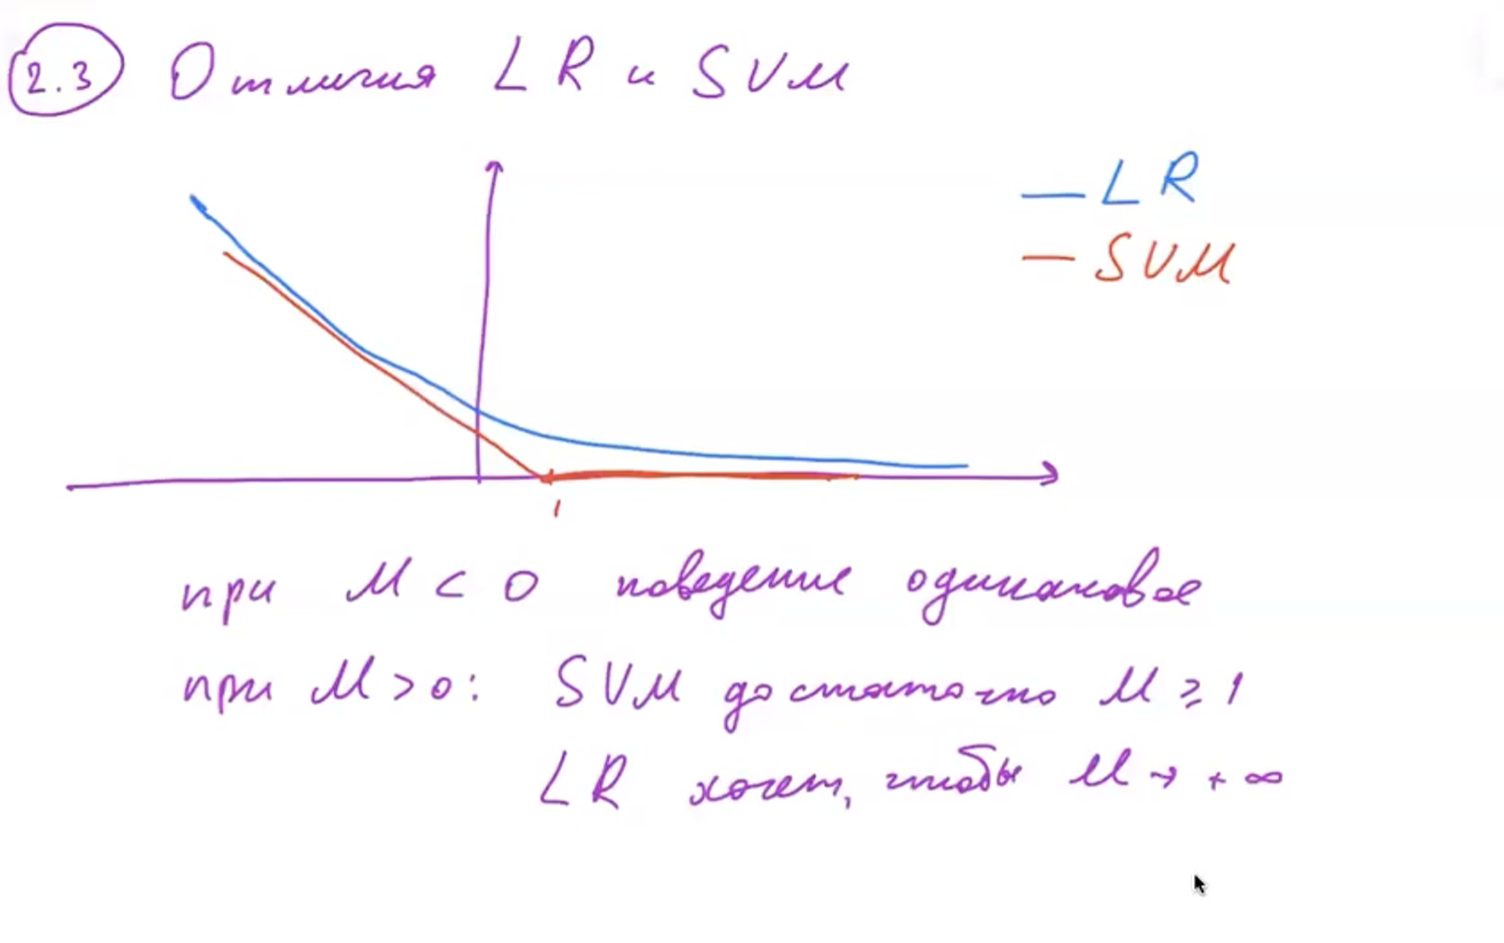 2.3 Отличия LR и SVM
— LR
— SVM
1
при M < 0 поведение одинаковое
при M > 0: SVM достаточно M ≥ 1
LR хочет, чтобы M → +∞